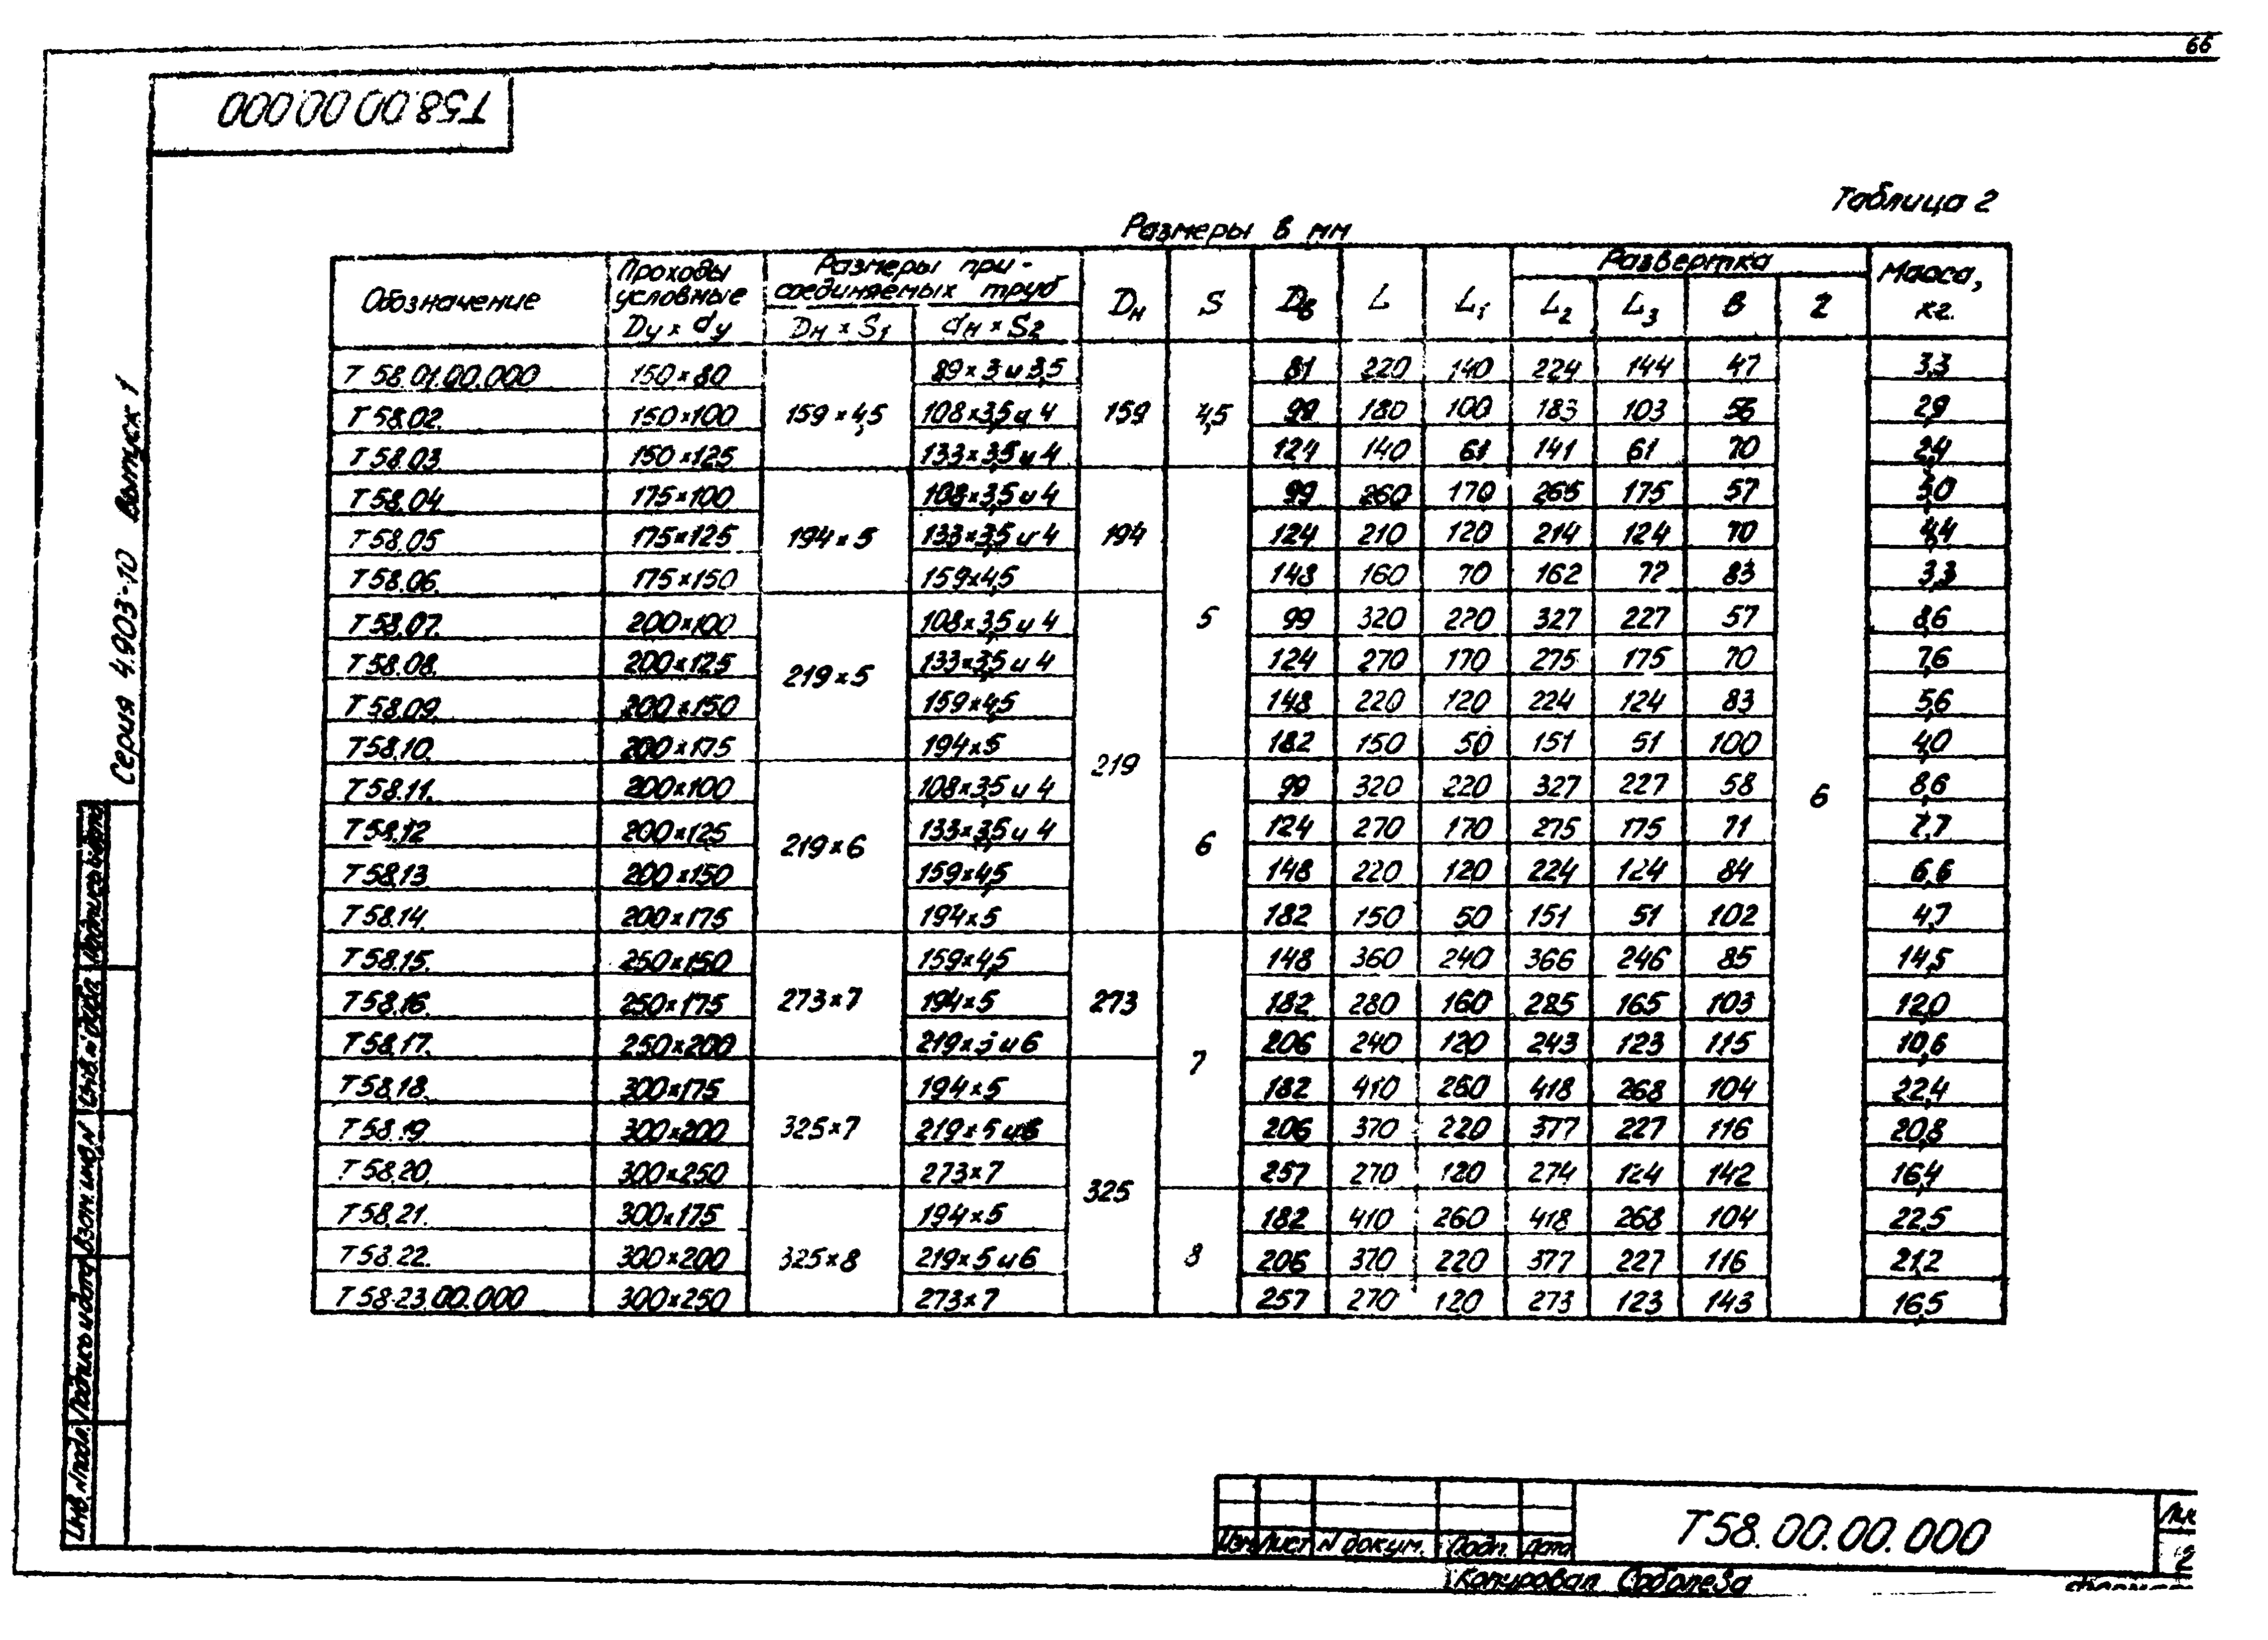 66
Т58.00.00.000
Таблица 2
Размеры в мм
Обозначение | Проходы условные Dу × dу | Размеры присоединяемых труб Dн × S1 | dн × S2 | Dн | S | Dв | L | L1 | Развертка L2 | L3 | В | Z | Масса, кг.
Т 58.01.00.000 | 150×80 | 159×4,5 | 89×3 и 3,5 | 159 | 4,5 | 81 | 220 | 140 | 224 | 144 | 47 | 6 | 3,3
Т 58.02. | 150×100 | 108×3,5 и 4 | 99 | 180 | 100 | 183 | 103 | 56 | 2,9
Т 58.03. | 150×125 | 133×3,5 и 4 | 124 | 140 | 61 | 141 | 61 | 70 | 2,4
Т 58.04. | 175×100 | 194×5 | 108×3,5 и 4 | 194 | 5 | 99 | 260 | 170 | 265 | 175 | 57 | 5,0
Т 58.05 | 175×125 | 133×3,5 и 4 | 124 | 210 | 120 | 214 | 124 | 70 | 4,4
Т 58.06. | 175×150 | 159×4,5 | 148 | 160 | 70 | 162 | 72 | 83 | 3,3
Т 58.07. | 200×100 | 219×5 | 108×3,5 и 4 | 219 | 99 | 320 | 220 | 327 | 227 | 57 | 8,6
Т 58.08. | 200×125 | 133×3,5 и 4 | 124 | 270 | 170 | 275 | 175 | 70 | 7,6
Т 58.09. | 200×150 | 159×4,5 | 148 | 220 | 120 | 224 | 124 | 83 | 5,6
Т 58.10. | 200×175 | 194×5 | 182 | 150 | 50 | 151 | 51 | 100 | 4,0
Т 58.11. | 200×100 | 219×6 | 108×3,5 и 4 | 6 | 99 | 320 | 220 | 327 | 227 | 58 | 8,6
Т 58.12 | 200×125 | 133×3,5 и 4 | 124 | 270 | 170 | 275 | 175 | 71 | 7,7
Т 58.13 | 200×150 | 159×4,5 | 148 | 220 | 120 | 224 | 124 | 84 | 6,6
Т 58.14. | 200×175 | 194×5 | 182 | 150 | 50 | 151 | 51 | 102 | 4,7
Т 58.15. | 250×150 | 273×7 | 159×4,5 | 273 | 7 | 148 | 360 | 240 | 366 | 246 | 85 | 14,5
Т 58.16. | 250×175 | 194×5 | 182 | 280 | 160 | 285 | 165 | 103 | 12,0
Т 58.17. | 250×200 | 219×5 и 6 | 206 | 240 | 120 | 243 | 123 | 115 | 10,6
Т 58.18. | 300×175 | 325×7 | 194×5 | 325 | 182 | 410 | 260 | 418 | 268 | 104 | 22,4
Т 58.19 | 300×200 | 219×5 и 6 | 206 | 370 | 220 | 377 | 227 | 116 | 20,8
Т 58.20. | 300×250 | 273×7 | 257 | 270 | 120 | 274 | 124 | 142 | 16,4
Т 58.21. | 300×175 | 325×8 | 194×5 | 8 | 182 | 410 | 260 | 418 | 268 | 104 | 22,5
Т 58.22. | 300×200 | 219×5 и 6 | 206 | 370 | 220 | 377 | 227 | 116 | 21,2
Т 58.23.00.000 | 300×250 | 273×7 | 257 | 270 | 120 | 273 | 123 | 143 | 16,5
Серия 4.903-10 Выпуск 1
Инв. N подл. | Подпись и дата | Взам. инв. N | Инв. N дубл. | Подпись и дата
Изм | Лист | N докум. | Подп. | Дата
Т58.00.00.000
2
Копировал Соболева